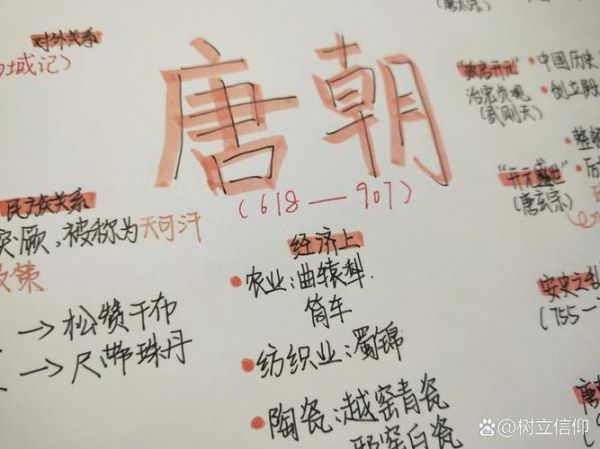 对外关系
域记)
唐朝
(618—907)
民族关系
突厥,被称为天可汗
政策
→松赞干布
→尺带珠丹
经济上
•农业:曲辕犁.
筒车
•纺织业:蜀锦
•陶瓷:越窑青瓷
邢窑白瓷
"政启开元"
治宏贞观
(武则天)
•中国历史
•创立殿
"开元盛世"
(唐玄宗)
•整
安史之乱
(755—
唐
@树立信仰